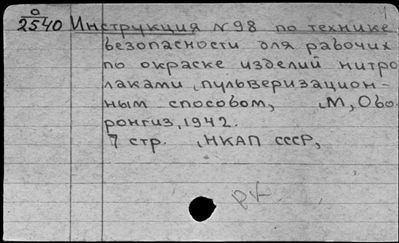 О
2540 Инструкция №98 по технике
безопасности для рабочих
по окраске изделий нитро
лаками пульверизацион-
ным способом, М, Обо
ронгиз, 1942.
7 стр. НКАП СССР,